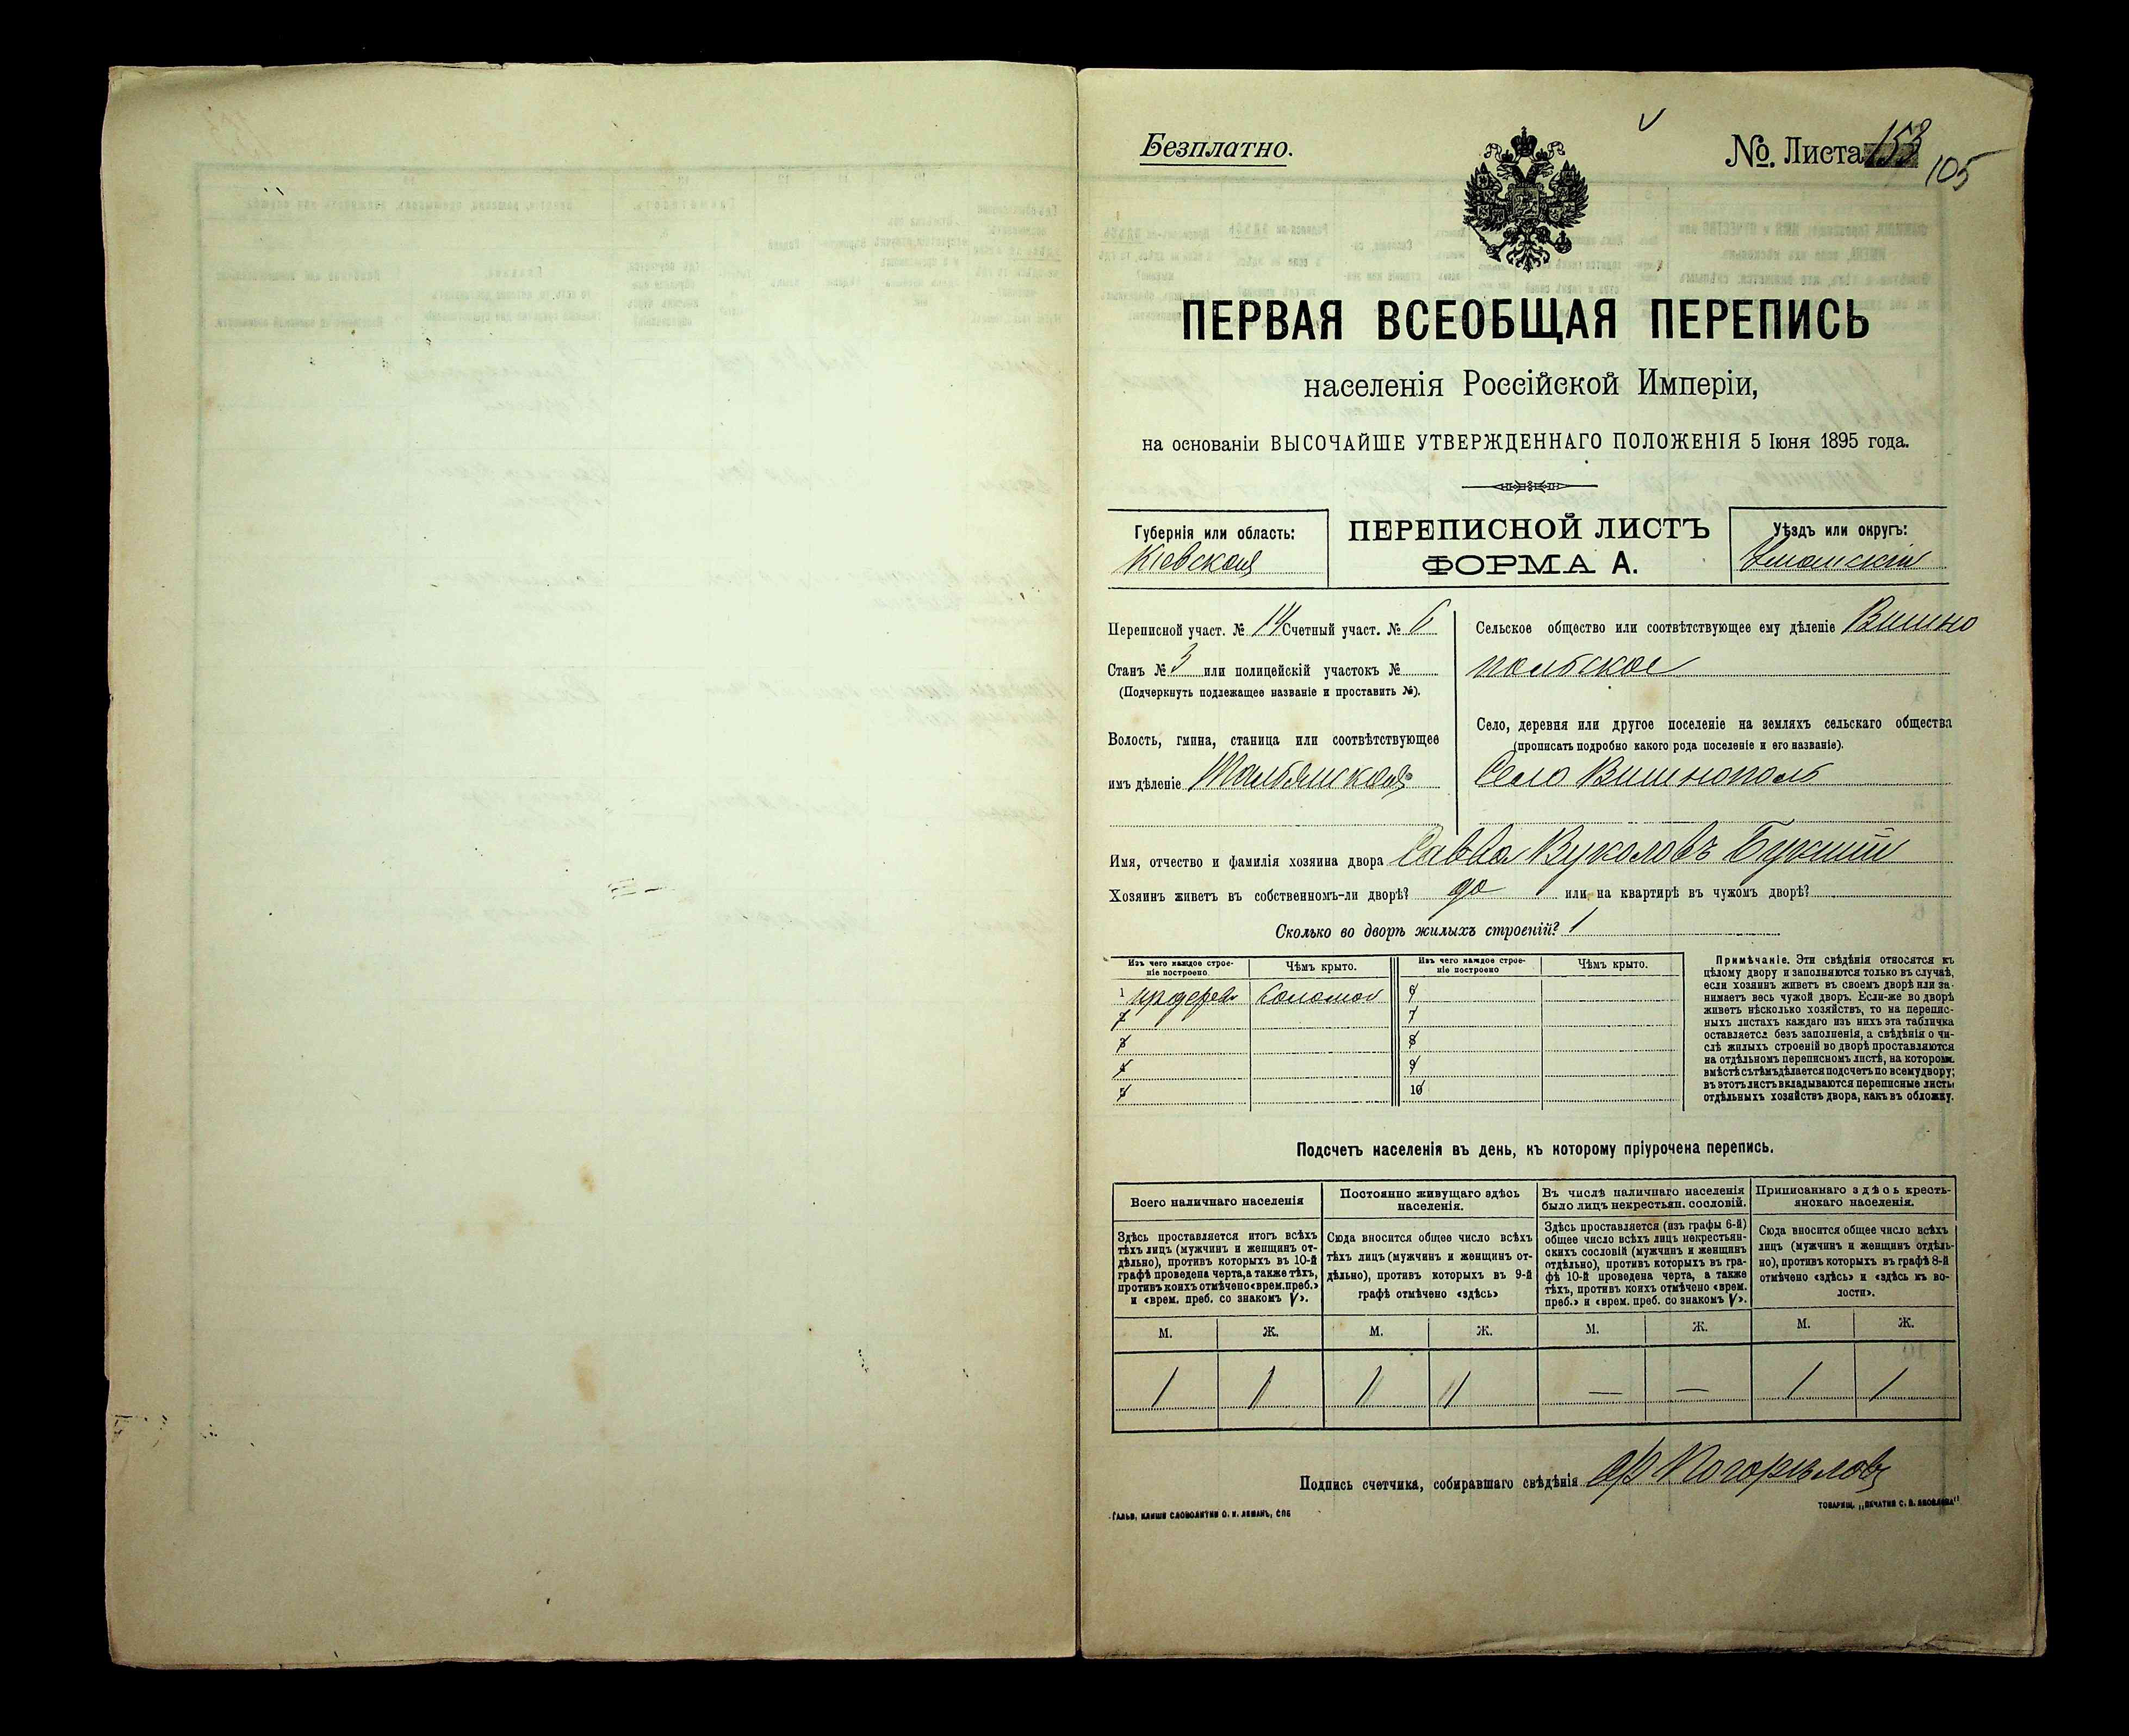 Безплатно.
№. Листа 153
105
ПЕРВАЯ ВСЕОБЩАЯ ПЕРЕПИСЬ
населенія Россійской Имперіи,
на основаніи ВЫСОЧАЙШЕ УТВЕРЖДЕННАГО ПОЛОЖЕНІЯ 5 Іюня 1895 года.
Губернія или область:
Кіевская
ПЕРЕПИСНОЙ ЛИСТЪ
ФОРМА А.
Уѣздъ или округъ:
Уманскій
Переписной участ. № 14 Счетный участ. № 6
Станъ № 3 или полицейскій участокъ №
(Подчеркнуть подлежащее названіе и проставить №).
Волость, гмина, станица или соотвѣтствующее
имъ дѣленіе Тальянская
Сельское общество или соотвѣтствующее ему дѣленіе Вишно
польское
Село, деревня или другое поселеніе на земляхъ сельскаго общества
(прописать подробно какого рода поселеніе и его названіе).
Село Вишнополь
Имя, отчество и фамилія хозяина двора Савва Вуколовъ
Хозяинъ живетъ въ собственномъ-ли дворѣ? да или на квартирѣ въ чужомъ дворѣ?
Сколько во дворѣ жилыхъ строеній? 1
Изъ чего каждое строе-
ніе построено.
Чѣмъ крыто.
Изъ чего каждое строе-
ніе построено
Чѣмъ крыто.
1 Соломой 6
2 7
3 8
4 9
5 10
Примѣчаніе. Эти свѣдѣнія относятся къ
цѣлому двору и заполняются только въ случаѣ,
если хозяинъ живетъ въ своемъ дворѣ или за-
нимаетъ весь чужой дворъ. Если-же во дворѣ
живетъ нѣсколько хозяйствъ, то на перепис-
ныхъ листахъ каждаго изъ нихъ эта табличка
оставляется безъ заполненія, а свѣдѣнія о чи-
слѣ жилыхъ строеній во дворѣ проставляются
на отдѣльномъ переписномъ листѣ, на которомъ
вмѣстѣ съ тѣмъ дѣлается подсчетъ по всему двору;
въ этотъ листъ вкладываются переписные листы
отдѣльныхъ хозяйствъ двора, какъ въ обложку.
Подсчетъ населенія въ день, къ которому пріурочена перепись.
Всего наличнаго населенія
Здѣсь проставляется итогъ всѣхъ
тѣхъ лицъ (мужчинъ и женщинъ от-
дѣльно), противъ которыхъ въ 10-й
графѣ проведена черта, а также тѣхъ,
противъ коихъ отмѣчено «врем. преб.»
и «врем. преб. со знакомъ V».
Постоянно живущаго здѣсь
населенія.
Сюда вносится общее число всѣхъ
тѣхъ лицъ (мужчинъ и женщинъ от-
дѣльно), противъ которыхъ въ 9-й
графѣ отмѣчено «здѣсь»
Въ числѣ наличнаго населенія
было лицъ некрестьян. сословій.
Здѣсь проставляется (изъ графы 6-й)
общее число всѣхъ лицъ некрестьян-
скихъ сословій (мужчинъ и женщинъ
отдѣльно), противъ которыхъ въ гра-
фѣ 10-й проведена черта, а также
тѣхъ, противъ коихъ отмѣчено «врем.
преб.» и «врем. преб. со знакомъ V».
Приписаннаго здѣсь кресть-
янскаго населенія.
Сюда вносится общее число всѣхъ
лицъ (мужчинъ и женщинъ отдѣль-
но), противъ которыхъ въ графѣ 8-й
отмѣчено «здѣсь» и «здѣсь къ во-
лости».
М. Ж. М. Ж. М. Ж. М. Ж.
1 1 1 1 — — 1 1
Подпись счетчика, собиравшаго свѣдѣнія Погорѣловъ
ГАЛЬВ. КЛИШЕ СЛОВОЛИТНИ О. И. ЛЕМАНЪ, СПБ
ТОВАРИЩ. „ПЕЧАТНЯ С. П. ЯКОВЛЕВА"